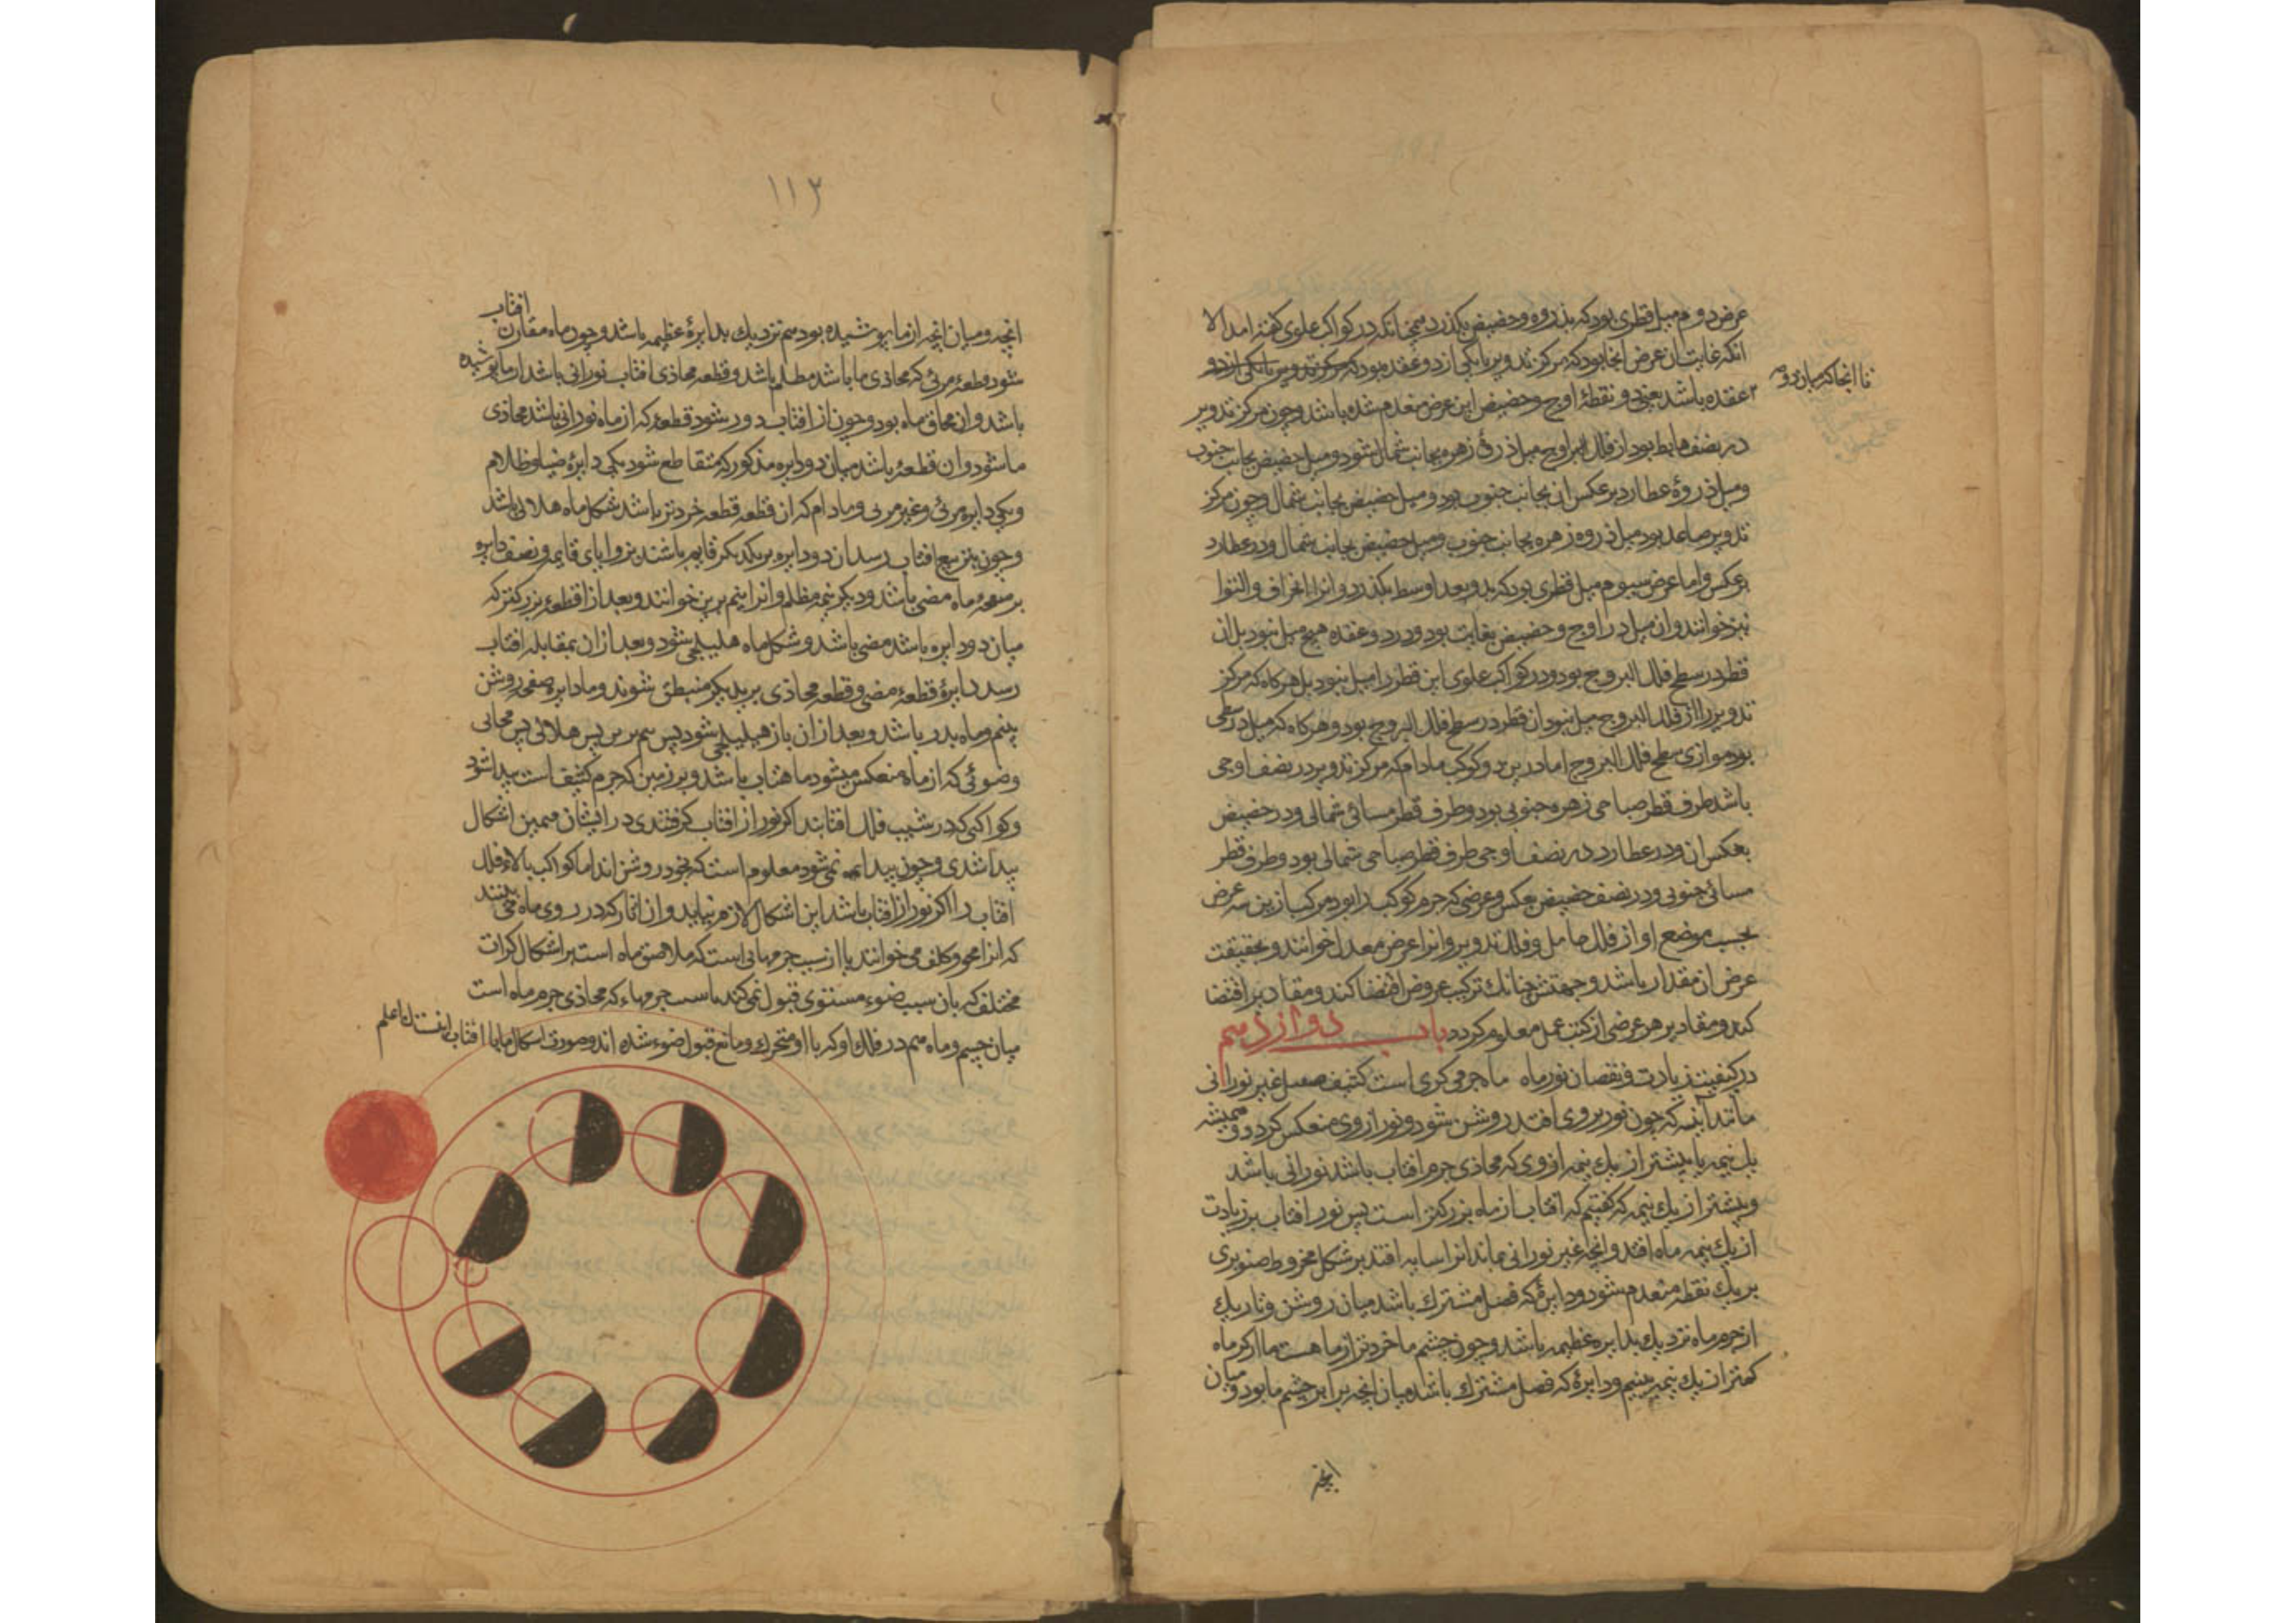 عرض دوم میل قطری بود که بذروه و حضیض بگذرد همچنانکه در کواکب علوی گفته امد الا
انکه غایت ان عرض انجا بود که مرکز تدویر با یکی از دو عقده بود که مرکز تدویر با یکی از دو
تا انجا که میان دو
عقده باشد یعنی دو نقطۀ اوج و حضیض این عرض منعدم شده باشد و چون مرکز تدویر
در نصف هابط بود از فلک اوج میل ذروۀ زهره بجانب شمال شود و میل حضیض بجانب جنوب
و میل ذروۀ عطارد بر عکس ان بجانب جنوب بود و میل حضیض بجانب شمال و چون مرکز
تدویر صاعد بود میل ذروه زهره بجانب جنوب و میل حضیض بجانب شمال و در عطارد
بر عکس و اما عرض سیوم میل قطری بود که بدو بعد اوسط بگذرد و انرا انحراف و التوا
نیز خوانند و ان میل در اوج و حضیض بغایت بود و در دو عقده هیچ میل نبود بل ان
قطر در سطح فلک البروج بود و در کواکب علوی این قطر را میل نبود بل هرکاه که مرکز
تدویر را از فلک البروج میل نبود ان قطر در سطح فلک البروج بود و هرکاه که میل در سطحی
بود موازی سطح فلک البروج اما در این دو کوکب مادام که مرکز تدویر در نصف اوجی
باشد طرف قطر صباحی زهره جنوبی بود و طرف قطر مسائی شمالی و در حضیض
بعکس ان و در عطارد در نصف اوجی طرف قطر صباحی شمالی بود و طرف قطر
مسائی جنوبی و در نصف حضیض بعکس و عرضی که جرم کوکب را بود مرکب از این سه عرض
بحسب موضع او از فلک حامل و فلک تدویر و انرا عرض معدل خوانند و بحقیقت
عرض ان مقدار باشد و جهتش چنانک ترکیب عروض اقتضا کند و مقادیر اقتضا
کند و مقادیر هر عرضی از کتب عمل معلوم کردد باب دوازدهم
در کیفیت زیادت و نقصان نور ماه ماه جرمی کری است کثیف صقیل غیر نورانی
مانند آینه که چون نور بر وی افتد روشن شود و نور از وی منعکس کردد و همیشه
یک نیمه یا بیشتر از یک نیمه از وی که محاذی جرم افتاب باشد نورانی باشد
و بیشتر از یک نیمه که گفتیم که افتاب از ماه بزرکتر است پس نور افتاب بر زیادت
از یک نیمه ماه افتد و انچه غیر نورانی بماند انرا سایه افتد بر شکل مخروط صنوبری
بر یک نقطه منعدم شود و دایرۀ که فصل مشترک باشد میان روشن و تاریک
از جرم ماه نزدیک بدایره عظیمه باشد و چون چشم ما خردتر از ماه است ما از کره ماه
کمتر از یک نیمه بینیم و دایرۀ که فصل مشترک باشد میان انچه برابر چشم ما بود و میان
انچه
۱۱۳
انچه و میان انچه از ما پوشیده بود هم نزدیک بدایرۀ عظیمه باشد و چون ماه مقارن افتاب
شود قطعۀ مرئی که محاذی ما باشد مظلم باشد و قطعه محاذی افتاب نورانی باشد از ما پوشیده
باشد و ان محاق ماه بود و چون از افتاب دور شود قطعۀ که از ماه نورانی باشد محاذی
ما شود و ان قطعۀ باشد میان دو دایره مذکور که متقاطع شود یکی دایرۀ ضیا و ظلام
و یکی دایره مرئی و غیر مرئی و مادام که ان قطعه قطعه خردتر باشد شکل ماه هلالی باشد
و چون بتربیع افتاب رسد ان دو دایره بر یکدیکر قایم باشند بزوایای قایمه و نصف دایره
بر صفحۀ ماه مضی باشد و دیکر نیم مظلم و انرا نیم برین خوانند و بعد از ان قطعۀ بزرکتر که
میان دو دایره باشد مضی باشد و شکل ماه هلیلجی شود و بعد از ان بمقابله افتاب
رسد دایرۀ قطعۀ مضی و قطعه محاذی بر یکدیکر منطبق شوند و ما دایره صفحه روشن
بینیم و ماه بدر باشد و بعد از ان باز هلیلجی شود پس نیم برین پس هلالی پس محاقی
و ضوئی که از ماه منعکس میشود ماهتاب باشد و بر زمین که جرم کثیف است پیدا شود
و کواکبی که در شیب فلک افتابند اکر نور از افتاب کرفتندی در ایشان همین اشکال
پیدا شدی و چون پیدا نمی شود معلوم است که بخود روشن اند اما کواکب بالاء فلک
افتاب را اکر نور از افتاب باشد این اشکال لازم نیاید و ان اثار که در روی ماه می بینند
که انرا محو و کلف می خوانند یا از سبب جرمهائی است که ملاصق ماه است بر اشکال کرات
مختلف که بان سبب ضوء مستوی قبول نمی کند یا سبب جرمهاء که محاذی جرم ماه است
میان چشم و ماه هم در فلک او که با او متحرک و مانع قبول ضوء شده اند و صورت اشکال ماه با افتاب اینست والله اعلم